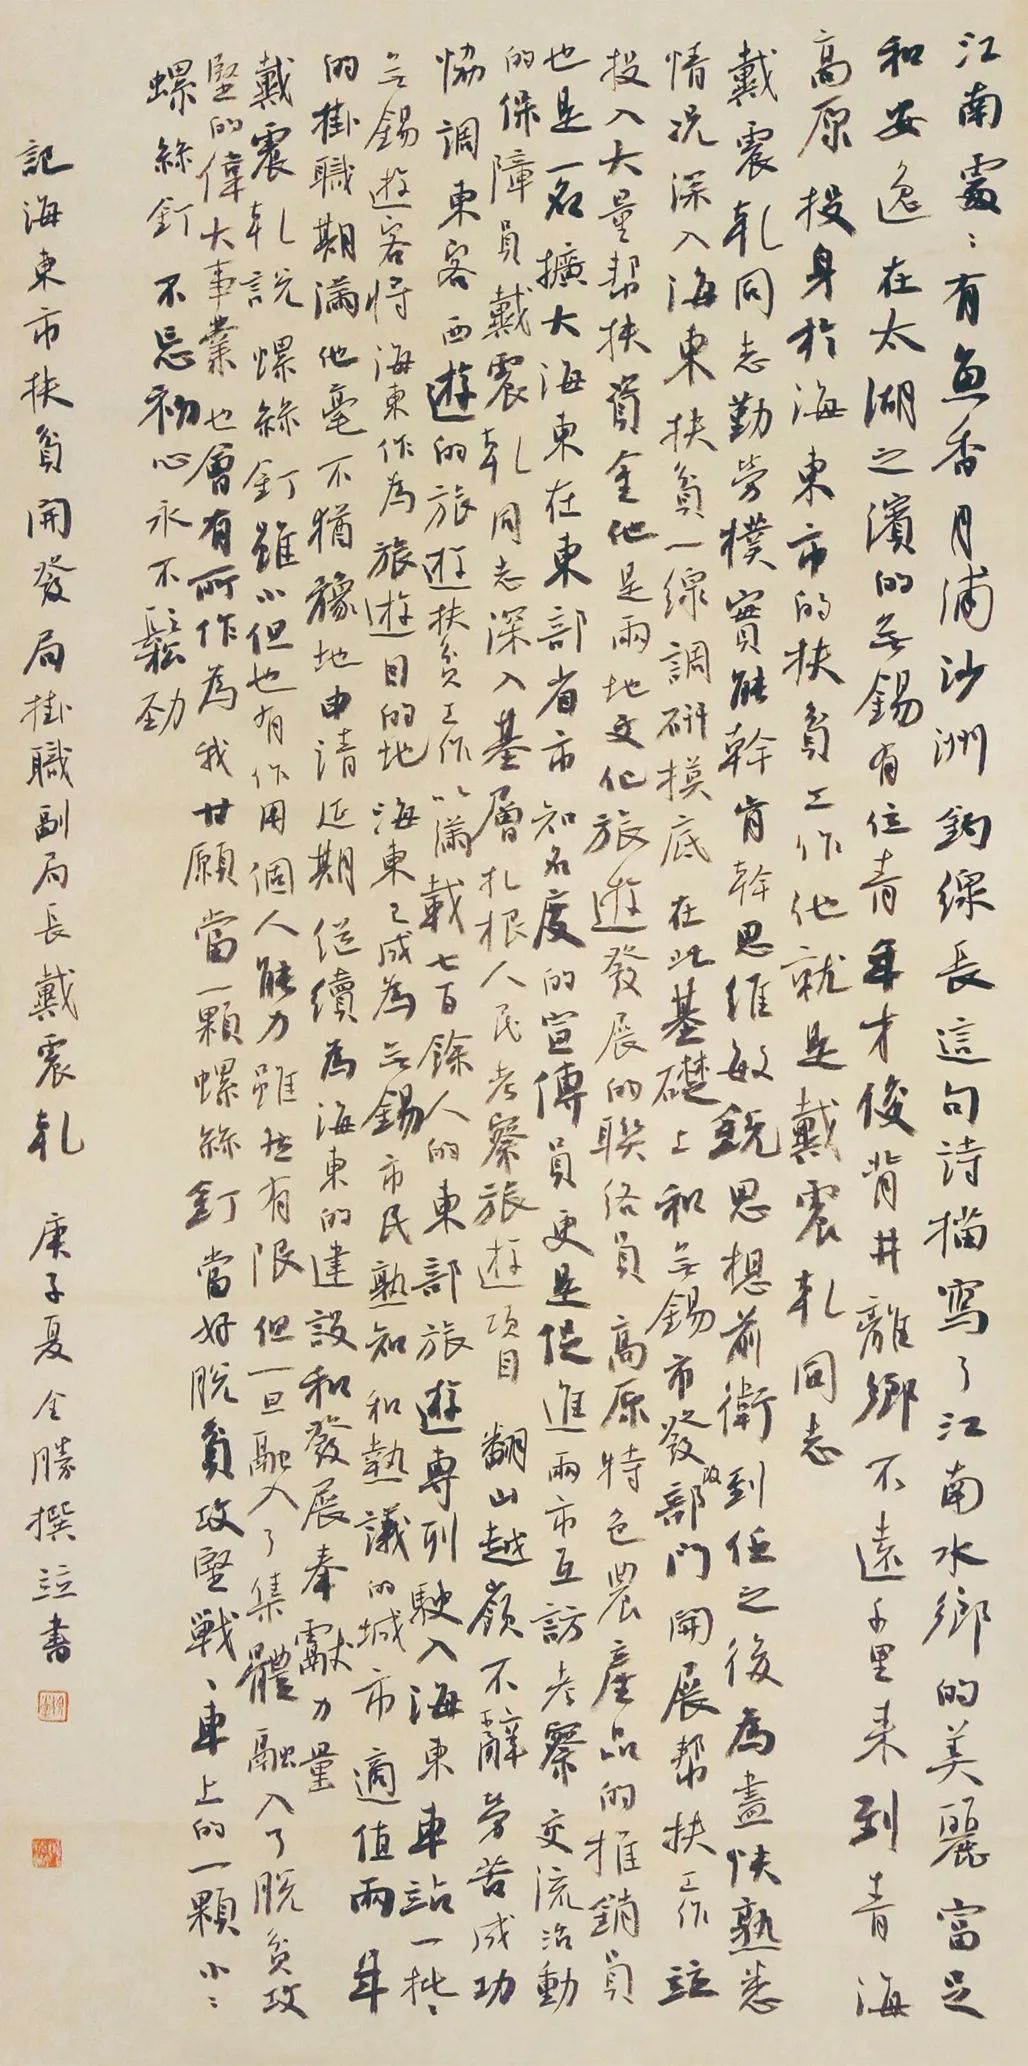 江南處〻有魚香月浦沙洲釣線長這句詩描寫了江南水鄉的美麗富足
和安逸在太湖之濱的無錫有位青年才俊背井離鄉不遠千里来到青海
高原投身於海東市的扶貧工作他就是戴震軋同志
戴震軋同志勤勞樸實能幹肯幹思維敏銳思想前衛到任之後為盡快熟悉
情况深入海東扶貧一線調研摸底在此基礎上和無錫市發改部門開展幫扶工作並
投入大量幫扶資金他是兩地文化旅遊發展的聯络員高原特色農產品的推銷員
也是一名擴大海東在東部省市知名度的宣傳員更是促進兩市互訪考察交流活動
的保障員戴震軋同志深入基層扎根人民考察旅遊項目翻山越嶺不辭勞苦成功
協調東客西遊的旅遊扶貧工作以滿載七百餘人的東部旅遊專列駛入海東車站一批〻
無錫遊客將海東作為旅遊目的地海東已成為無錫市民熟知和熱議的城市適值兩年
的掛職期滿他毫不猶豫地申請延期繼續為海東的建設和發展奉獻力量
戴震軋說螺絲釘雖小但也有作用個人能力雖然有限但一旦融入了集體融入了脱貧攻
堅的偉大事業也會有所作為我甘願當一顆螺絲釘當好脱貧攻堅戰〻車上的一顆小〻
螺絲釘不忘初心永不鬆勁
記海東市扶貧開發局掛職副局長戴震軋 庚子夏全勝撰並書